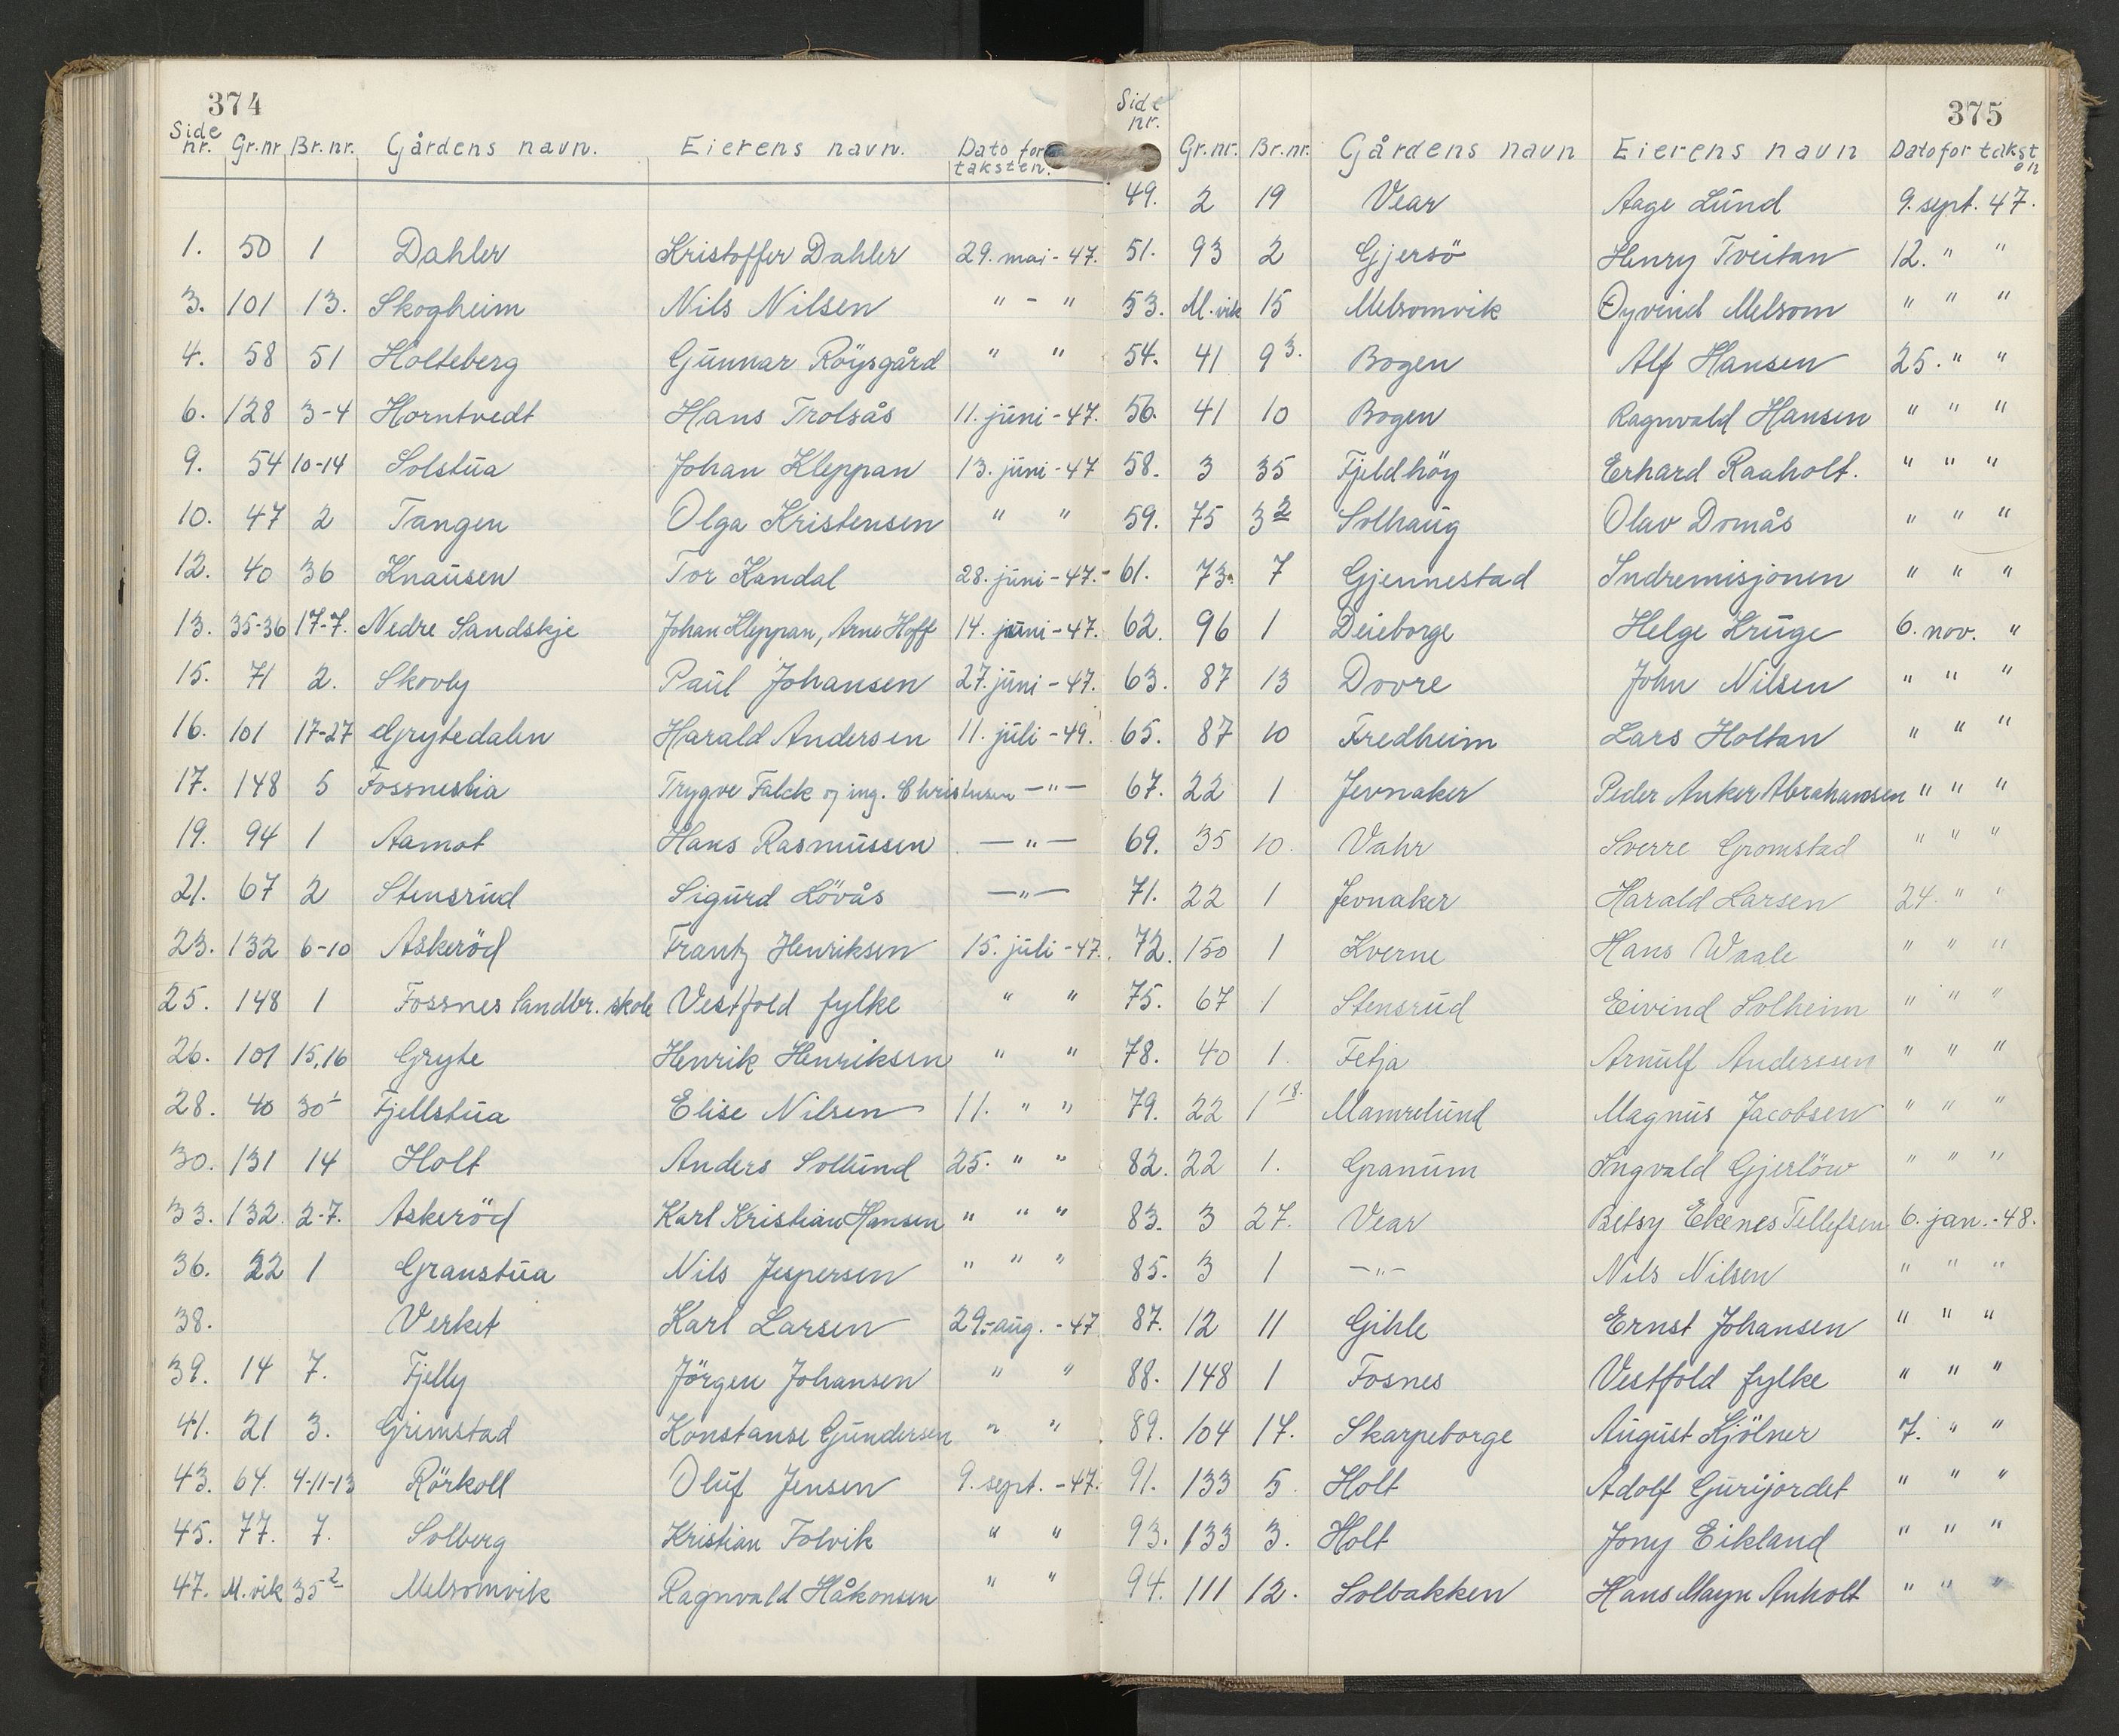 374
Side nr. Gr.nr Br.nr. Gårdens navn. Eierens navn. Dato for taksten.
1. 50 1 Dahler Kristoffer Dahler 29. mai - 47.
3. 101 13. Skogheim Nils Nilsen " - "
4. 58 51 Holteberg Gunnar Röysgård " "
6. 128 3-4 Horntvedt Hans Trolsås 11. juni - 47.
9. 54 10-14 Solstua Johan Kleppan 13. juni - 47
10. 47 2 Tangen Olga Kristensen " "
12. 40 36 Knausen Tor Kandal 28. juni - 47.
13. 35-36 17-7. Nedre Sandskje Johan Kleppan, Arne Hoff 14. juni - 47.
15. 71 2. Skovly Paul Johansen 27. juni - 47.
16. 101 17-27 Grytedalen Harald Andersen 11. juli - 49.
17. 148 5 Fossneslia Trygve Falck og ing. Christensen — " —
19. 94 1 Aamot Hans Rasmussen — " —
21. 67 2 Stensrud Sigurd Lövås — " —
23. 132 6-10 Askeröd Frantz Henriksen 15. juli - 47.
25. 148 1 Fossnes landbr. skole Vestfold fylke " "
26. 101 15,16 Gryte Henrik Henriksen " "
28. 40 30 Fjellstua Elise Nilsen 11. " "
30. 131 14 Holt Anders Sollund 25. " "
33. 132 2-7. Askeröd Karl Kristian Hansen " " "
36. 22 1 Granstua Nils Jespersen " " "
38. Verket Karl Larsen 29. aug. - 47
39. 14 7. Fjelly Jörgen Johansen " "
41. 21 3. Grimstad Konstanse Gundersen " "
43. 64. 4-11-13 Rörkoll Oluf Jensen 9. sept. - 47.
45. 77. 7. Solberg Kristian Tolvik " "
47. M.vik 35 2 Melsomvik Ragnvald Håkonsen " "
375
Side nr. Gr.nr. Br.nr. Gårdens navn Eierens navn Dato for taksten
49. 2 19 Vear Aage Lund 9. sept. 47.
51. 93 2 Gjersö Henry Tveitan 12. " "
53. M.vik 15 Melsomvik Øyvind Melsom " " "
54. 41 9 3. Bogen Alf Hansen 25. " "
56. 41 10 Bogen Ragnvald Hansen " " "
58. 3 35 Fjeldhöy Erhard Raaholt. " " "
59. 75 3 2 Solhaug Olav Domås " " "
61. 73. 7 Gjennestad Indremisjonen " " "
62. 96 1 Deieborge Helge Kruge 6. nov. "
63. 87 13 Dovre John Nilsen " " "
65. 87 10 Fredheim Lars Holtan " " "
67. 22 1 Jevnaker Peder Anker Abrahamsen " " "
69. 35 10. Vahr Sverre Gromstad " " "
71. 22 1 Jevnaker Harald Larsen 24. " "
72. 150 1 Kverne Hans Waale " " "
75. 67 1 Stensrud Eivind Solheim " " "
78. 40 1. Fetja Arnulf Anderssen " " "
79. 22 1 18. Mamrelund Magnus Jacobsen " " "
82. 22 1. Granum Ingvald Gjerlöw " " "
83. 3 27. Vear Betsy Ekenes Tellefsen 6. jan. - 48.
85. 3 1 — " — Nils Nilsen " " "
87. 12 11 Gihle Ernst Johansen " " "
88. 148 1 Fosnes Vestfold fylke " " "
89. 104 17. Skarpeborge August Kjölner 7. " "
91. 133 5. Holt Adolf Gurijordet " " "
93. 133 3. Holt Jony Eikland " " "
94. 111 12. Solbakken Hans Mayn Anholt " " "